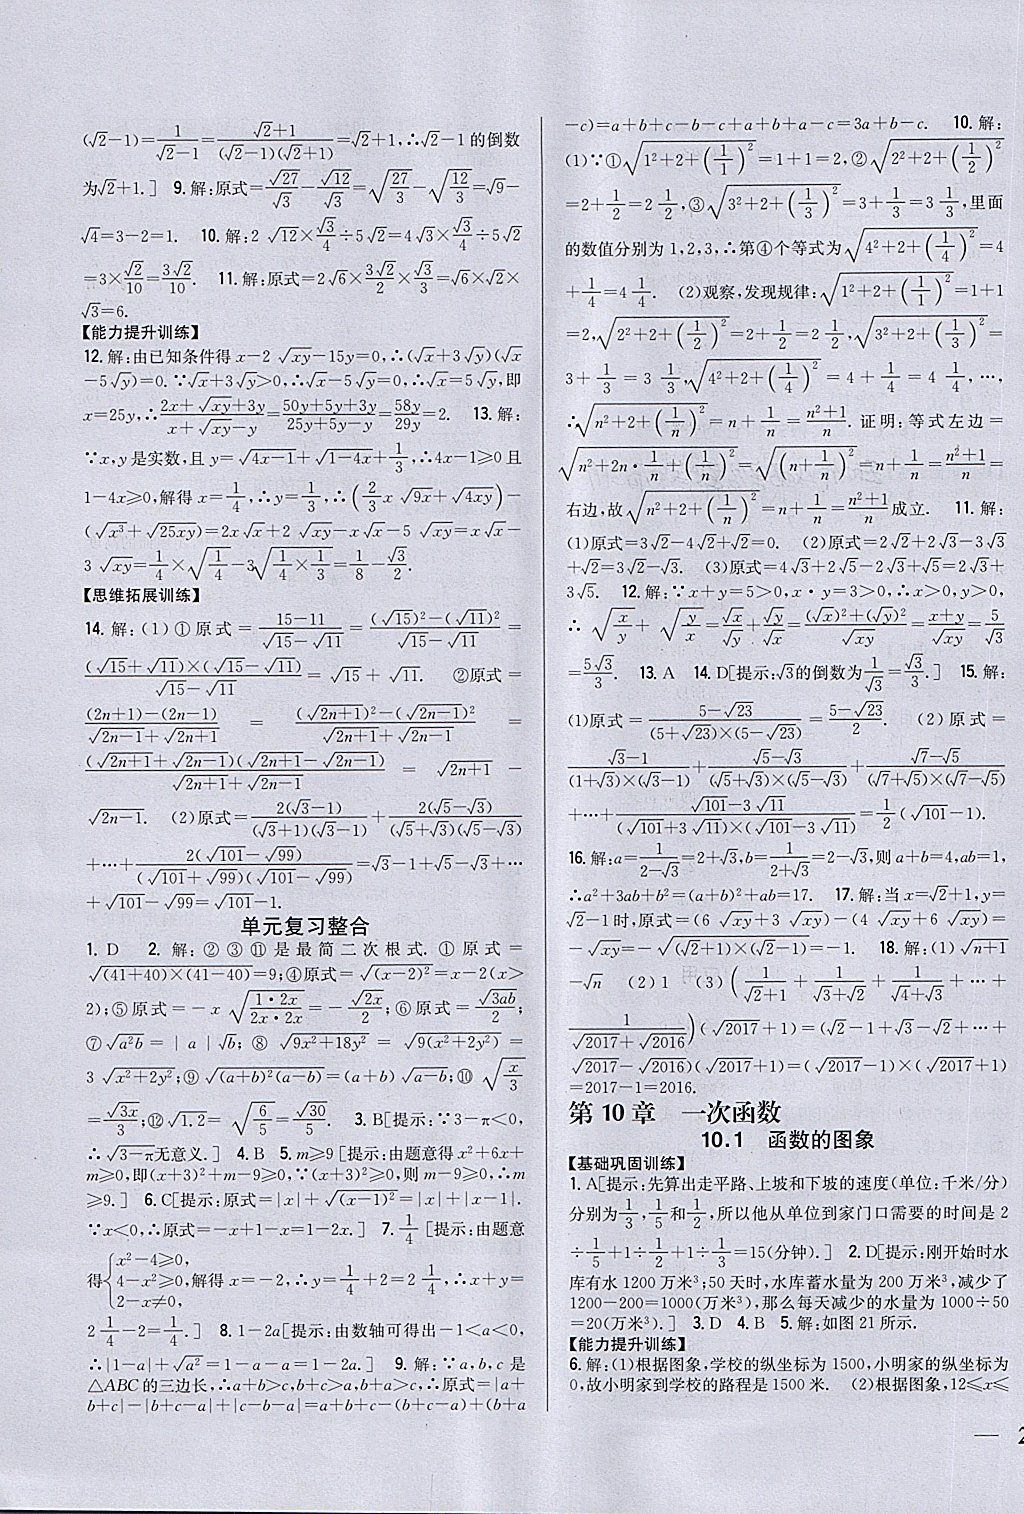 (√2-1)=1/(√2-1)=(√2+1)/((√2-1)(√2+1))=√2+1,∴√2-1的倒数
为√2+1.] 9.解:原式=√27/√3-√12/√3=√(27/3)-√(12/3)=√9-
√4=3-2=1. 10.解:2√12×√3/4÷5√2=4√3×√3/4÷5√2
=3×√2/10=3√2/10. 11.解:原式=2√6×3√2/2×√3/3=√6×√2×
√3=6.
【能力提升训练】
12.解:由已知条件得x-2√xy-15y=0,∴(√x+3√y)(√x
-5√y)=0.∵√x+3√y>0,∴√x-5√y=0,∴√x=5√y,即
x=25y,∴(2x+√xy+3y)/(x+√xy-y)=(50y+5y+3y)/(25y+5y-y)=58y/29y=2. 13.解:
∵x,y是实数,且y=√(4x-1)+√(1-4x)+1/3,∴4x-1≥0且
1-4x≥0,解得x=1/4,∴y=1/3,∴(2/3 x√9x+√4xy)-
(√x³+√25xy)=2x√x+2√xy-x√x-5√xy=x√x-
3√xy=1/4×√(1/4)-3√(1/4×1/3)=1/8-√3/2.
【思维拓展训练】
14.解:(1)①原式=(15-11)/(√15-√11)=((√15)²-(√11)²)/(√15-√11)=
((√15+√11)×(√15-√11))/(√15-√11)=√15+√11. ②原式=
((2n+1)-(2n-1))/(√(2n-1)+√(2n+1))=((√(2n+1))²-(√(2n-1))²)/(√(2n+1)+√(2n-1))=
((√(2n+1)+√(2n-1))(√(2n+1)-√(2n-1)))/(√(2n+1)+√(2n-1))=√(2n+1)-
√(2n-1). (2)原式=2(√3-1)/((√3+1)(√3-1))+2(√5-√3)/((√5+√3)(√5-√3))
+⋯+2(√101-√99)/((√101+√99)(√101-√99))=√3-1+√5-√3+⋯
+√101-√99=√101-1.
单元复习整合
1.D 2.解:②③⑪是最简二次根式.①原式=
√((41+40)×(41-40))=9;④原式=√(x-2)²=x-2(x>
2);⑤原式=-x√(1·2x/2x·2x)=-√2x/2;⑥原式=√3ab/2;
⑦√a²b=|a|√b;⑧√(9x²+18y²)=√(9(x²+2y²))=
3√(x²+2y²);⑨√((a+b)²(a-b))=(a+b)√(a-b);⑩√(x/3)
=√3x/3;⑫√1.2=√(6/5)=√30/5. 3.B[提示:∵3-π<0,
∴√(3-π)无意义.] 4.B 5.m≥9[提示:由题意得x²+6x+
m≥0,即(x+3)²+m-9≥0,∵(x+3)²≥0,则m-9≥0,∴m
≥9.] 6.C[提示:原式=|x|+√(x-1)²=|x|+|x-1|.
∵x<0,∴原式=-x+1-x=1-2x.] 7.1/4[提示:由题意
得{x²-4≥0,4-x²≥0,2-x≠0,解得x=-2,∴y=1/4+2=2 1/4,∴x+y=
2 1/4-2=1/4.] 8.1-2a[提示:由数轴可得出-1<a<0,
∴|1-a|+√a²=1-a-a=1-2a.] 9.解:∵a,b,c是
△ABC的三边长,∴a+b>c,b+c>a,∴原式=|a+
b+c|-|b+c-a|+|c-b-a|=a+b+c-(b+c-a)+(b+a
-c)=a+b+c-b-c+a+b+a-c=3a+b-c. 10.解:
(1)∵①√(1²+2+(1/1)²)=1+1=2,②√(2²+2+(1/2)²)
=2+1/2=2 1/2,③√(3²+2+(1/3)²)=3+1/3=3 1/3,里面
的数值分别为1,2,3,∴第④个等式为√(4²+2+(1/4)²)=4
+1/4=4 1/4. (2)观察,发现规律:√(1²+2+(1/1)²)=1+1
=2,√(2²+2+(1/2)²)=2+1/2=2 1/2,√(3²+2+(1/3)²)=
3+1/3=3 1/3,√(4²+2+(1/4)²)=4+1/4=4 1/4,⋯,
∴√(n²+2+(1/n)²)=n+1/n=(n²+1)/n.证明:等式左边=
√(n²+2n·1/n+(1/n)²)=√((n+1/n)²)=n+1/n=(n²+1)/n=
右边,故√(n²+2+(1/n)²)=n+1/n=(n²+1)/n成立. 11.解:
(1)原式=3√2-4√2+√2=0. (2)原式=2√2+2√3-3√3
+√2=3√2-√3. (3)原式=4√3+2√5-2√3+√5=2√3+
3√5. 12.解:∵x+y=5>0,x·y=3>0,∴x>0,y>0,
∴√(x/y)+√(y/x)=√x/√y+√y/√x=((√x)²+(√y)²)/√xy=(x+y)/√xy=5/√3
=5√3/3. 13.A 14.D[提示:√3的倒数为1/√3=√3/3.] 15.解:
(1)原式=(5-√23)/((5+√23)×(5-√23))=(5-√23)/2. (2)原式=
(√3-1)/((1+√3)×(√3-1))+(√5-√3)/((√5+√3)×(√5-√3))+(√7-√5)/((√7+√5)×(√7-√5)
+⋯+(√101-3√11)/((√101+3√11)×(√101-3√11)=1/2(√101-1).
16.解:a=1/(2-√3)=2+√3,b=1/(2+√3)=2-√3,则a+b=4,ab=1,
∴a²+3ab+b²=(a+b)²+ab=17. 17.解:当x=√2+1,y=
√2-1时,原式=(6√xy+3√xy)-(4√xy+6√xy)=
-√xy=-√((√2+1)×(√2-1))=-1. 18.解:(1)√(n+1)
-√n (2)1 (3)(1/(√2+1)+1/(√3+√2)+1/(√4+√3)+⋯+
1/(√2017+√2016))(√2017+1)=(√2-1+√3-√2+⋯+
√2017-√2016)(√2017+1)=(√2017-1)×(√2017+1)
=2017-1=2016.
第10章 一次函数
10.1 函数的图象
【基础巩固训练】
1.A[提示:先算出走平路、上坡和下坡的速度(单位:千米/分)
分别为1/3,1/5和1/2,所以他从单位到家门口需要的时间是2
÷1/5+1÷1/2+1÷1/3=15(分钟).] 2.D[提示:刚开始时水
库有水1200万米³;50天时,水库蓄水量为200万米³,减少了
1200-200=1000(万米³),那么每天减少的水量为1000÷50
=20(万米³).] 3.D 4.B 5.解:如图21所示.
【能力提升训练】
6.解:(1)根据图象,学校的纵坐标为1500,小明家的纵坐标为
0,故小明家到学校的路程是1500米. (2)根据图象,12≤x≤
— 2